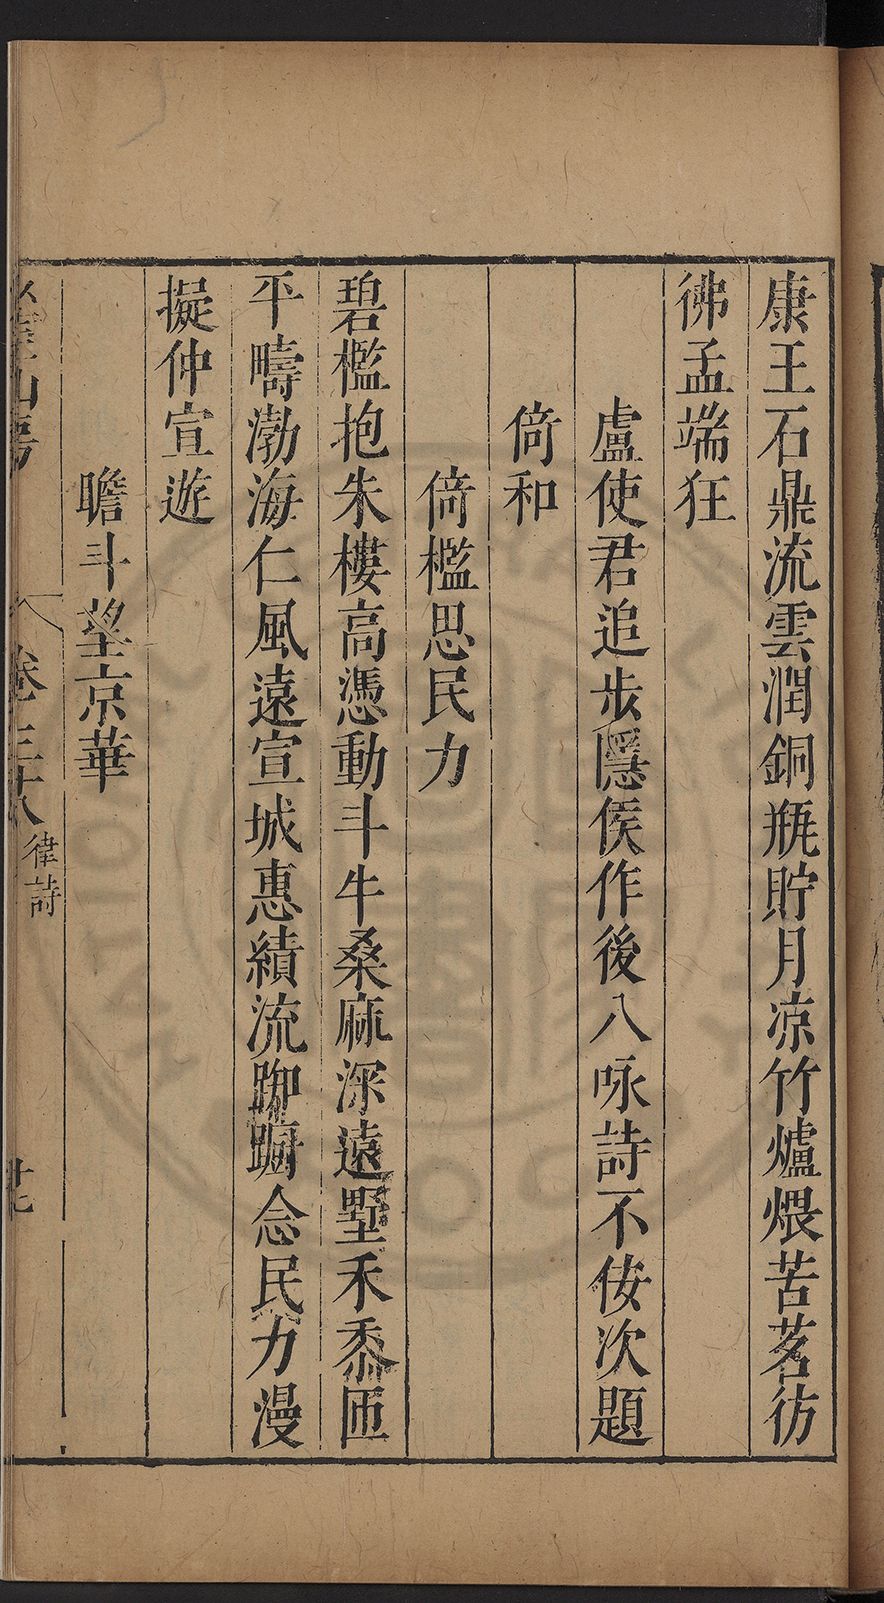 康王石鼎流雲潤銅瓶貯月凉竹爐煨苦茗彷
彿孟端狂
盧使君追步隱侯作後八咏詩不佞次題
倚和
倚檻思民力
碧檻抱朱樓高憑動斗牛桑麻深遠墅禾黍匝
平疇渤海仁風遠宣城惠績流踟躕念民力漫
擬仲宣遊
瞻斗望京華
山房
卷三十八
律詩
廿七